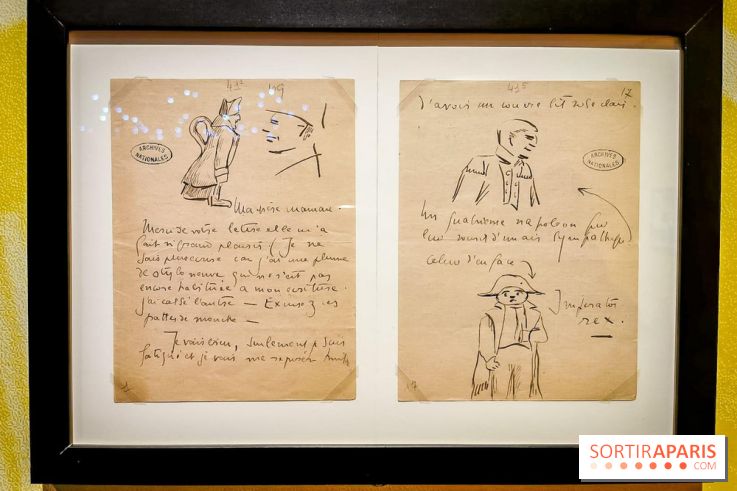 412
ARCHIVES NATIONALES
Ma chère maman.
Merci de votre lettre elle m'a
fait si grand plaisir. Je ne
suis
car j'ai une plume
de stylo neuve qui n'est pas
encore habituée a mon ecriture.
j'ai cassé l'autre — Excusez ces
pattes de mouche —
Je vais bien, seulement je suis
fatigué et je vais me reposer
415
17
J'avais un couvre lit
ARCHIVES NATIONALES
Un quatrième napoléon qui
lui d'un air sympathique
celui d'en face
Imperator
rex.
SORTIRAPARIS
.COM